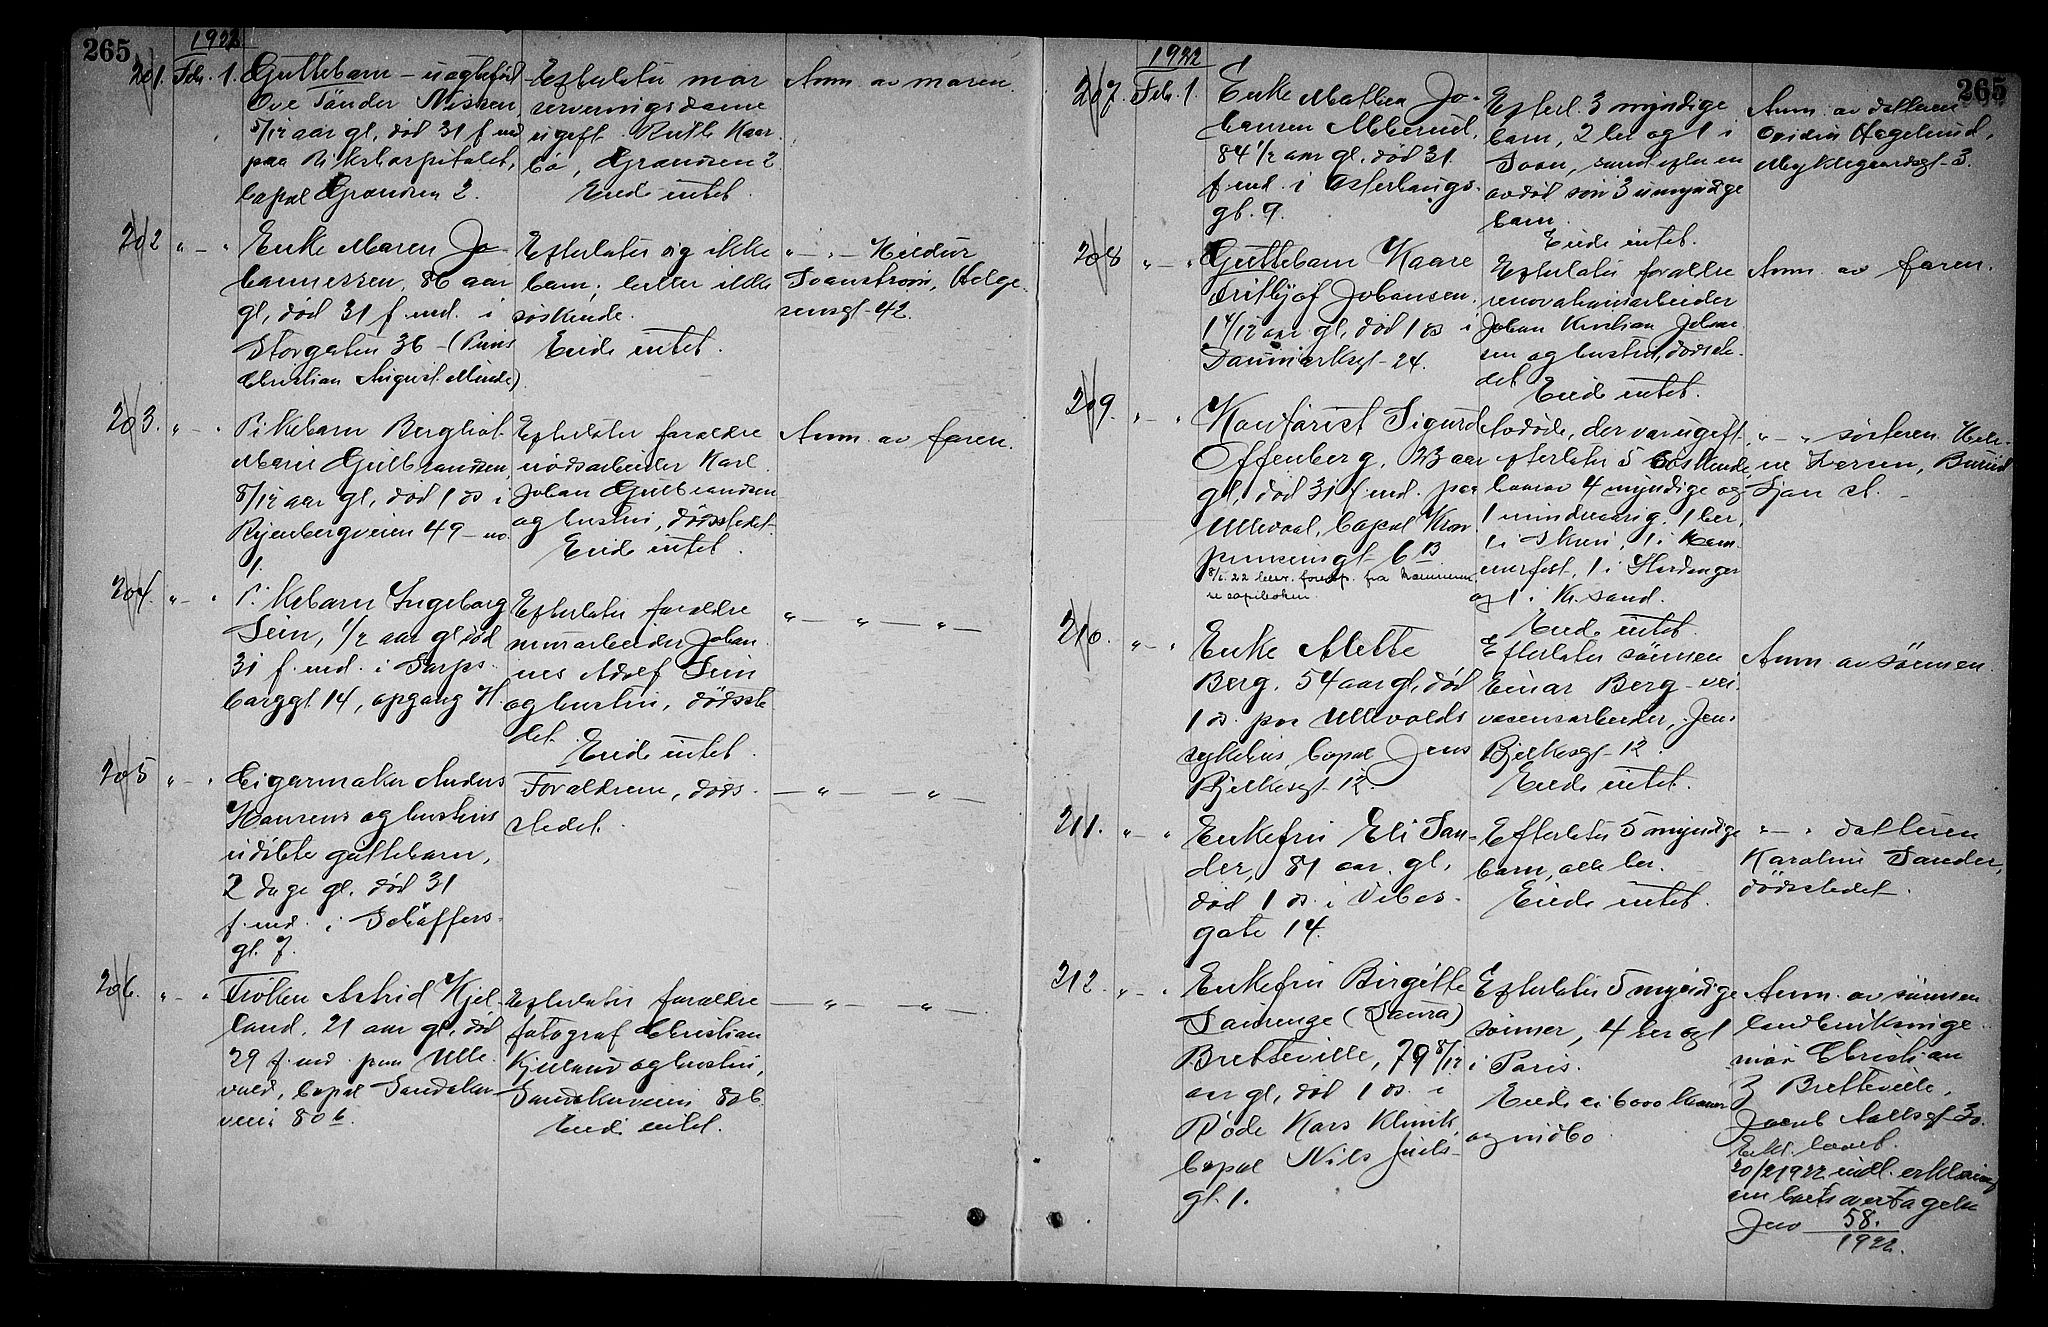 265
1922
201. Feb. 1. Guttebarn - uægtefød
Ove Tönder Nissen,
5/12 aar gl, död 31 f md
paa Rikshospitalet,
bopæl Grændsen 2.
Efterlater mor
serveringsdame
ugift Ruth Kaar
bö, Grændsen 2
Eiede intet.
Anm. av moren.
202 " - " Enke Maren Jo-
hannessen, 86 aar
gl, död 31 f. md. i
Storgaten 36 - (Prins
Christian August Minde)
Efterlater sig ikke
barn, heller ikke
söskende.
Eiede intet.
" - " - Hildur
Svanström, Helge
sensgt. 42.
203. " - " Pikebarn Bergliot
Marie Gulbrandsen,
8/12 aar gl, död 1 ds i
Ryenbergveien 49 - no.
1.
Efterlater forældre
nödsarbeider Karl
Johan Gulbrandsen
og hustru, dödsstedet.
Eiede intet.
Anm. av faren.
204. " - " Pikebarn Ingeborg
1/2 aar gl, död
31 f. md. i Sarps-
borggt. 14, opgang H.
Efterlater forældre
murarbeider Johan
nes Adolf
og hustru, dödsste
det.
Eiede intet.
" - " - " -
205 " - " Cigarmaker Anders
Hansens og hustrus
udöbte guttebarn,
2 dage gl, död 31
f. md. i Schäffers-
gt. 7.
Forældrene, döds-
stedet.
- " - - " -
206. " - " Fröken Astrid Kjel-
land, 21 aar gl, död
29 f. md. paa Ulle-
vaal, bopæl Sandaker
veien 80 b
Efterlater forældre
fotograf Christian
Kjelland og hustru,
Sandakerveien 80 b.
Eiede intet.
- " - - " -
265
1922
207. Feb. 1. Enke Mathea Jo-
hansen
84 1/2 aar gl, död 31
f md. i Österhaugs-
gt. 9.
Efterl. 3 myndige
barn, 2 her og 1 i
Soon, samt efter en
avdöd sön 3 umyndige
barn.
Eiede intet.
Anm. av datteren
Hagelund,
Myklegaardsgt. 3.
208 " - " Guttebarn Kaare
Fritjof Johansen,
1 4/12 aar gl, död 1 ds i
Danmarksgt. 24.
Efterlater forældre
renovationsarbeider
Johan Kristian Johan
sen og hustru, dödsste-
det
Eiede intet.
Anm. av faren.
209. " - " Kontorist Sigurd
Offenberg, 23 aar
gl, död 31 f. md. paa
Ullevaal, bopæl Kron
prinsensgt. 6 B
Avdöde, der var ugift
efterlater 5 söskende,
hvorav 4 myndige og
1 mindreaarig. 1 her,
1 i Skien, 1 i Ham
merfest, 1 i Hardanger
og 1 i Kr.sand.
Eiede intet.
" - " sösteren
Larsen,
Ljan st. -
210. " - " Enke Mette
Berg, 54 aar gl, död
1 ds. paa Ullevolds
sykehus, bopæl Jens
Bjelkesgt. 12.
Efterlater sönnen
Einar Berg - vei-
væsensarbeider, Jens
Bjelkesgt. 12.
Eiede intet.
Anm. av sönnen.
211. " - " Enkefru Eli San-
der, 81 aar gl,
död 1 ds. i Vibes-
gate 14.
Efterlater 5 myndige
barn, alle her.
Eiede intet.
" - " datteren
Karoline Sander,
dödsstedet.
212. " - " Enkefru Birgitte
(Laura)
Bretteville, 79 8/12
aar gl, död 1 ds. i
Röde Kors Klinik,
bopæl Nils Juels-
gt. 1.
Efterlater 5 myndige
sönner, 4 her og 1
i Paris.
Eiede ei 6000 kroner
og indbo
Anm. av sönnen
landbruksinge-
niör Christian
Z Bretteville,
Jacob Aallsgt 30.
Erkl. lovet.
20/2 1922 indl. erklæring
om boets overtagelse
Jno 58.
1922.